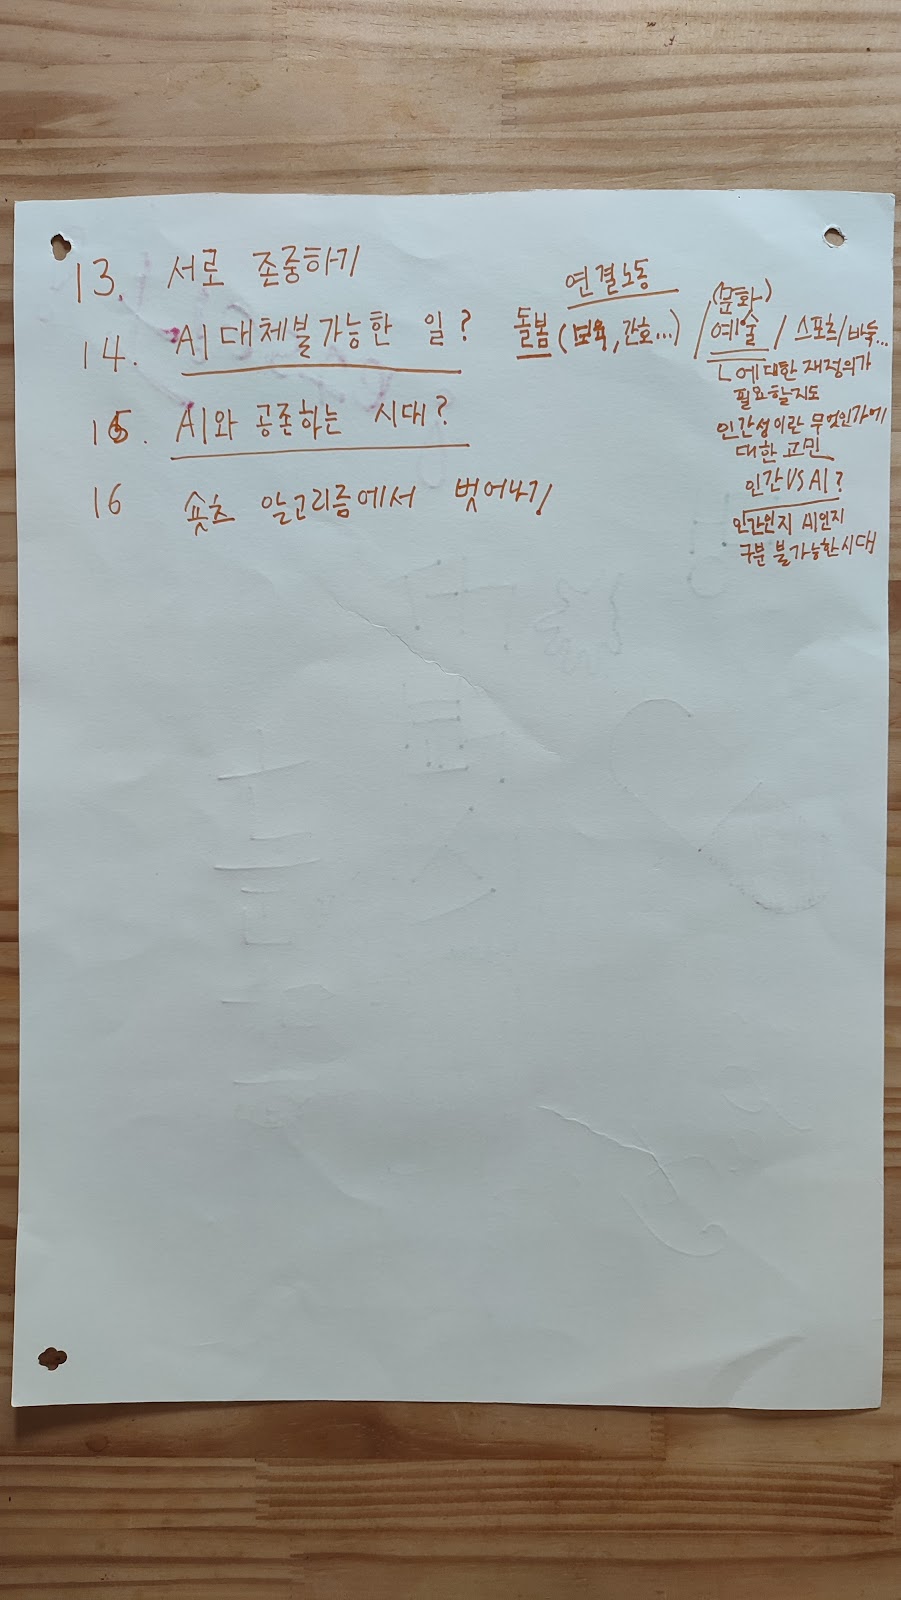 13. 서로 존중하기
14. AI 대체불가능한 일?
연결노동
돌봄 (보육, 간호...) / (문화) 예술 / 스포츠/바둑...
ㄴ에 대한 재정의가
필요할지도
인간성이란 무엇인가에
대한 고민
인간 VS AI?
인간인지 AI인지
구분 불가능한 시대
15. AI와 공존하는 시대?
16 숏츠 알고리즘에서 벗어나기